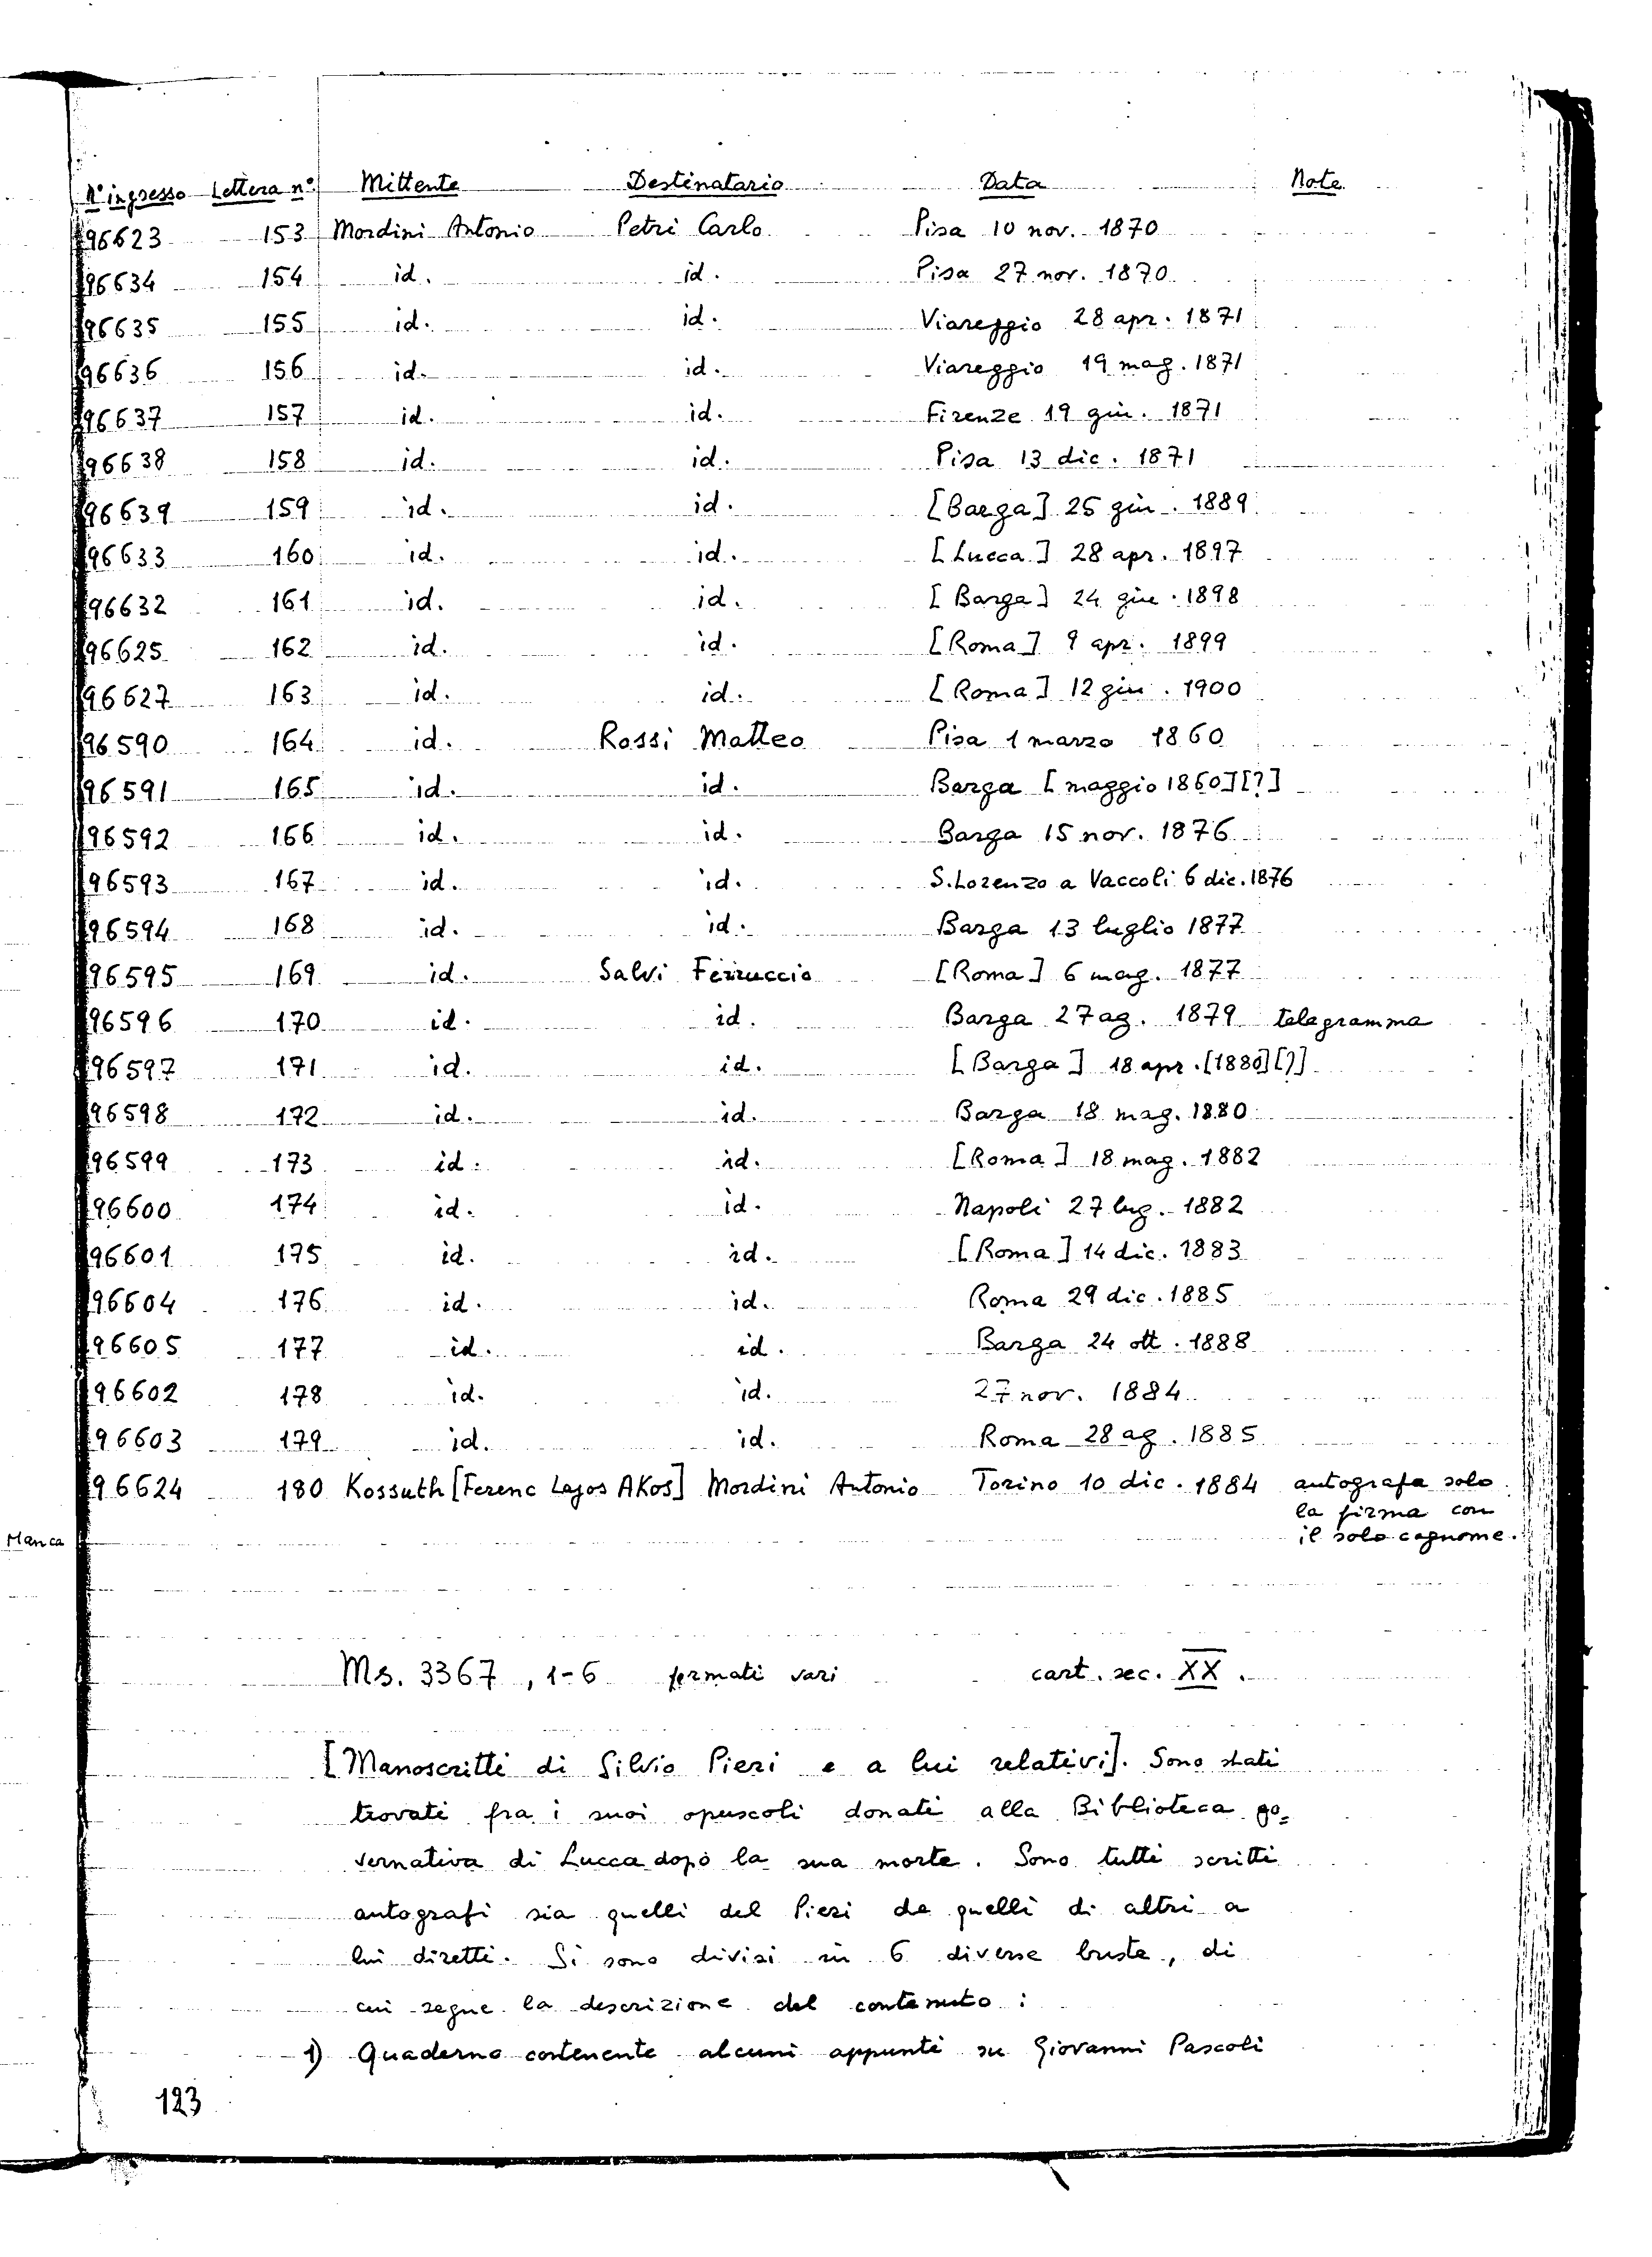 N° ingresso Lettera n° Mittente Destinatario Data Note
96623 153 Mordini Antonio Petri Carlo Pisa 10 nov. 1870
96634 154 id. id. Pisa 27 nov. 1870
96635 155 id. id. Viareggio 28 apr. 1871
96636 156 id. id. Viareggio 19 mag. 1871
96637 157 id. id. Firenze 19 giu. 1871
96638 158 id. id. Pisa 13 dic. 1871
96639 159 id. id. [Barga] 25 giu. 1889
96633 160 id. id. [Lucca] 28 apr. 1897
96632 161 id. id. [Barga] 24 giu. 1898
96625 162 id. id. [Roma] 9 apr. 1899
96627 163 id. id. [Roma] 12 giu. 1900
96590 164 id. Rossi Matteo Pisa 1 marzo 1860
96591 165 id. id. Barga [maggio 1860][?]
96592 166 id. id. Barga 15 nov. 1876
96593 167 id. id. S. Lorenzo a Vaccoli 6 dic. 1876
96594 168 id. id. Barga 13 luglio 1877
96595 169 id. Salvi Ferruccio [Roma] 6 mag. 1877
96596 170 id. id. Barga 27 ag. 1879 telegramma
96597 171 id. id. [Barga] 18 apr. [1880][?]
96598 172 id. id. Barga 18 mag. 1880
96599 173 id. id. [Roma] 18 mag. 1882
96600 174 id. id. Napoli 27 lug. 1882
96601 175 id. id. [Roma] 14 dic. 1883
96604 176 id. id. Roma 29 dic. 1885
96605 177 id. id. Barga 24 ott. 1888
96602 178 id. id. 27 nov. 1884
96603 179 id. id. Roma 28 ag. 1885
96624 180 Kossuth [Ferenc Lajos AKos] Mordini Antonio Torino 10 dic. 1884 autografa solo
la firma con
Manca il solo cognome.
Ms. 3367, 1-6 formati vari cart. sec. XX.
[Manoscritti di Silvio Pieri e a lui relativi]. Sono stati
trovati fra i suoi opuscoli donati alla Biblioteca go=
vernativa di Lucca dopo la sua morte. Sono tutti scritti
autografi sia quelli del Pieri che quelli di altri a
lui diretti. Si sono divisi in 6 diverse buste, di
cui segue la descrizione del contenuto:
1) Quaderno contenente alcuni appunti su Giovanni Pascoli
123